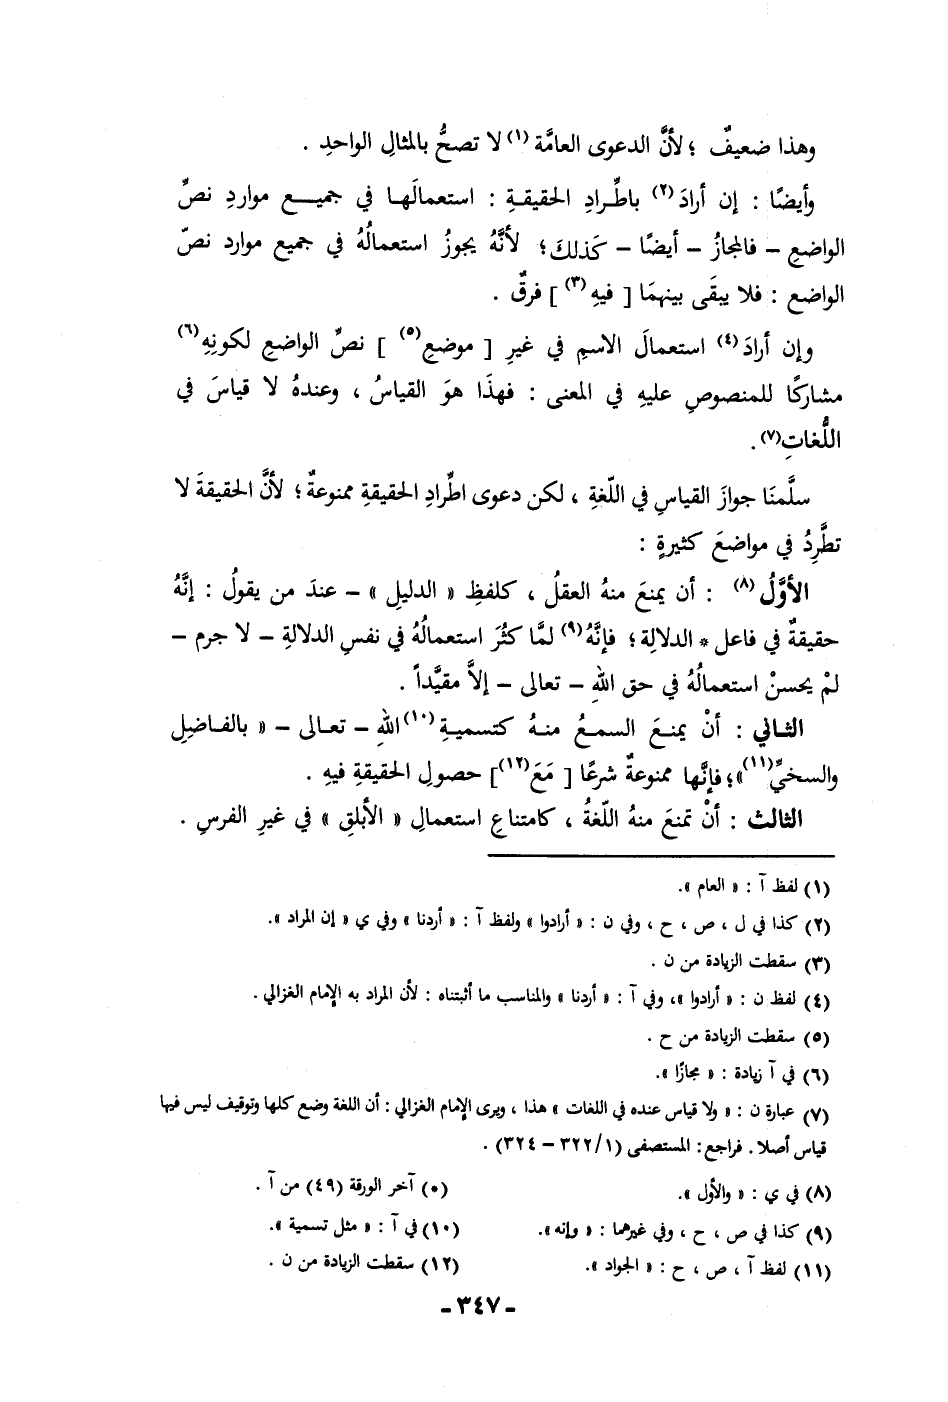 وهذا ضعيفٌ ؛ لأنَّ الدعوى العامَّة (١) لا تصحُّ بالمثالِ الواحدِ .
وأيضًا : إن أرادَ (٢) باطِّرادِ الحقيقةِ : استعمالَها في جميع مواردِ نصِّ
الواضعِ - فالمجازُ - أيضًا - كَذلكَ ؛ لأنَّهُ يجوزُ استعمالُهُ في جميع موارد نصّ
الواضع : فلا يبقَى بينهمَا [ فيهِ (٣) ] فرقٌ .
وإن أرادَ (٤) استعمالَ الاسمِ في غيرِ [ موضعِ (٥) ] نصِّ الواضعِ لكونِهِ (٦)
مشاركًا للمنصوصِ عليهِ في المعنى : فهذَا هوَ القياسُ ، وعندهُ لا قياسَ في
اللُّغاتِ (٧) .
سلَّمنَا جوازَ القياسِ في اللّغةِ ، لكن دعوى اطِّرادِ الحقيقةِ ممنوعةٌ ؛ لأنَّ الحقيقةَ لا
تطَّرِدُ في مواضعَ كثيرةٍ :
الأوَّلُ (٨) : أن يمنعَ منهُ العقلُ ، كلفظِ « الدليلِ » - عندَ من يقولُ : إنَّهُ
حقيقةٌ في فاعل * الدلالةِ ؛ فإنَّهُ (٩) لمَّا كثُرَ استعمالُهُ في نفسِ الدلالةِ - لا جرم -
لمْ يحسنْ استعمالُهُ في حق اللهِ - تعالى - إلاَّ مقيَّداً .
الثاني : أنْ يمنعَ السمعُ منهُ كتسميةِ (١٠) اللهِ - تعالى - « بالفاضِلِ
والسخيِّ (١١) » ؛ فإنَّها ممنوعةٌ شرعًا [ مَعَ (١٢) ] حصولِ الحقيقةِ فيهِ .
الثالث : أنْ تمنعَ منهُ اللّغةُ ، كامتناعِ استعمالِ « الأبلقِ » في غيرِ الفرسِ .
(١) لفظ آ : « العام » .
(٢) كذا في ل ، ص ، ح ، وفي ن : « أرادوا » ولفظ آ : « أردنا » وفي ي « إن المراد » .
(٣) سقطت الزيادة من ن .
(٤) لفظ ن : « أرادوا » ، وفي آ : « أردنا » والمناسب ما أثبتناه : لأن المراد به الإمام الغزالي .
(٥) سقطت الزيادة من ح .
(٦) في آ زيادة : « مجازًا » .
(٧) عبارة ن : « ولا قياس عنده في اللغات » هذا ، ويرى الإمام الغزالي : أن اللغة وضع كلها وتوقيف ليس فيها
قياس أصلا . فراجع : المستصفى (١/٣٢٢ - ٣٢٤) .
(٨) في ي : « والأول » . (*) آخر الورقة (٤٩) من آ .
(٩) كذا في ص ، ح ، وفي غيرهما : « وإنه » . (١٠) في آ : « مثل تسمية » .
(١١) لفظ آ ، ص ، ح : « الجواد » . (١٢) سقطت الزيادة من ن .
- ٣٤٧ -